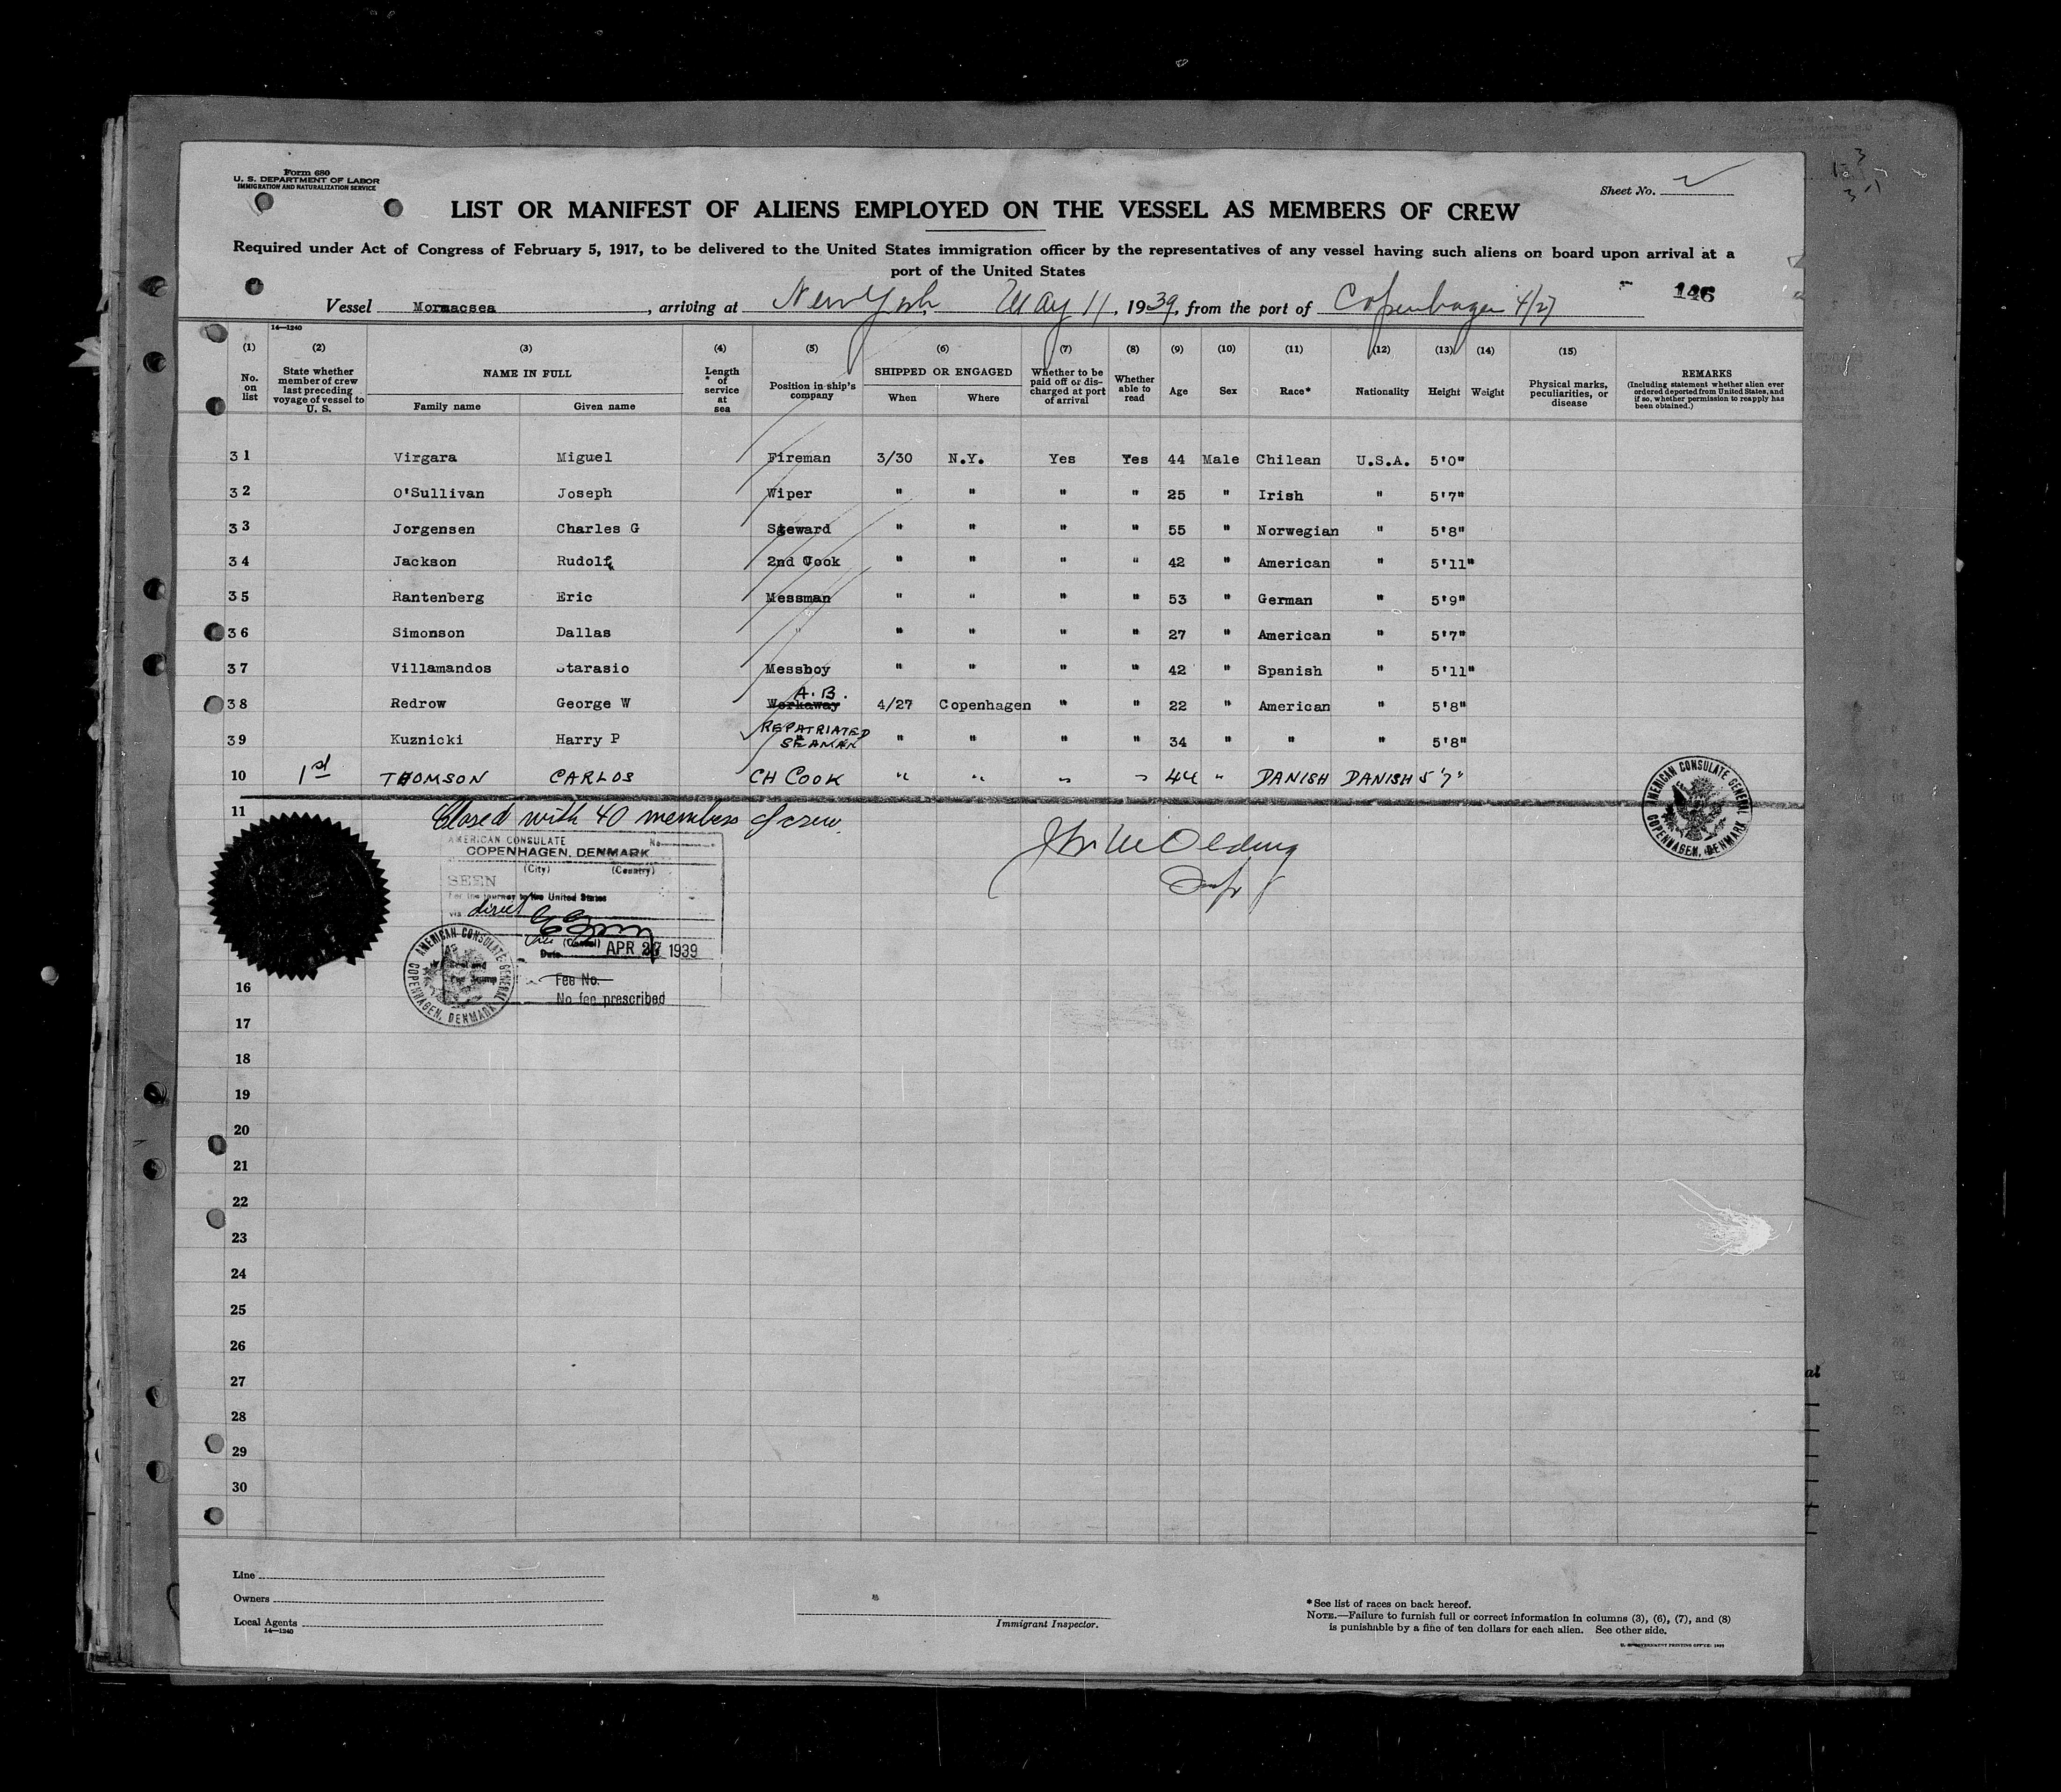 Form 680
U. S. DEPARTMENT OF LABOR
IMMIGRATION AND NATURALIZATION SERVICE
Sheet No. 2
LIST OR MANIFEST OF ALIENS EMPLOYED ON THE VESSEL AS MEMBERS OF CREW
Required under Act of Congress of February 5, 1917, to be delivered to the United States immigration officer by the representatives of any vessel having such aliens on board upon arrival at a
port of the United States
146
Vessel Mormacsea, arriving at New York, May 11, 1939, from the port of Copenhagen 4/27
14—1240
(1) (2) (3) (4) (5) (6) (7) (8) (9) (10) (11) (12) (13) (14) (15)
No. on list
State whether member of crew last preceding voyage of vessel to U. S.
NAME IN FULL
Family name Given name
Length of service at sea
Position in ship's company
SHIPPED OR ENGAGED
When Where
Whether to be paid off or discharged at port of arrival
Whether able to read
Age Sex Race* Nationality Height Weight
Physical marks, peculiarities, or disease
REMARKS
(Including statement whether alien ever ordered deported from United States, and if so, whether permission to reapply has been obtained.)
31 Virgara Miguel Fireman 3/30 N.Y. Yes Yes 44 Male Chilean U.S.A. 5'0"
32 O'Sullivan Joseph Wiper " " " " 25 " Irish " 5'7"
33 Jorgensen Charles G Steward " " " " 55 " Norwegian " 5'8"
34 Jackson Rudolf 2nd Cook " " " " 42 " American " 5'11"
35 Rantenberg Eric Messman " " " " 53 " German " 5'9"
36 Simonson Dallas " " " " " 27 " American " 5'7"
37 Villamandos Starasio Messboy " " " " 42 " Spanish " 5'11"
38 Redrow George W Workaway A.B. 4/27 Copenhagen " " 22 " American " 5'8"
39 Kuznicki Harry P REPATRIATED SEAMAN " " " " 34 " " " 5'8"
10 1st THOMSON CARLOS CH COOK " " " " 44 " DANISH DANISH 5'7"
11 Closed with 40 members of crew.
AMERICAN CONSULATE No
COPENHAGEN, DENMARK
(City) (Country)
SEEN
For the journey to the United States
via direct
Vice (Consul)
Date APR 27 1939
Fee No.
No fee prescribed
AMERICAN CONSULATE GENERAL COPENHAGEN, DENMARK
AMERICAN CONSULATE GENERAL COPENHAGEN, DENMARK
16
17
18
19
20
21
22
23
24
25
26
27
28
29
30
Line
Owners
Local Agents
14—1240
Immigrant Inspector.
*See list of races on back hereof.
NOTE.—Failure to furnish full or correct information in columns (3), (6), (7), and (8)
is punishable by a fine of ten dollars for each alien. See other side.